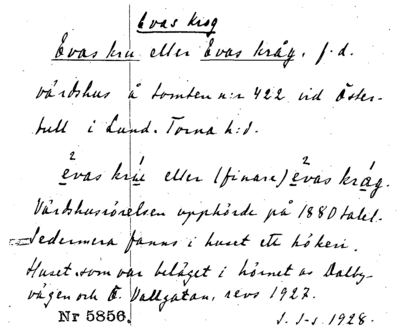 Evas krog
Evas kru eller Evas kråg, f.d.
värdshus å tomten n:r 422 vid Öster-
tull i Lund. Torna h:d.
ėvas krú eller (finare) ėvas krág.
Värdshusrörelsen upphörde på 1880 talet.
Sedermera fanns i huset ett hökeri.
Huset som var beläget i hörnet av Dalby-
vägen och Ö. Vallgatan, revs 1927.
Nr 5856. 1928.